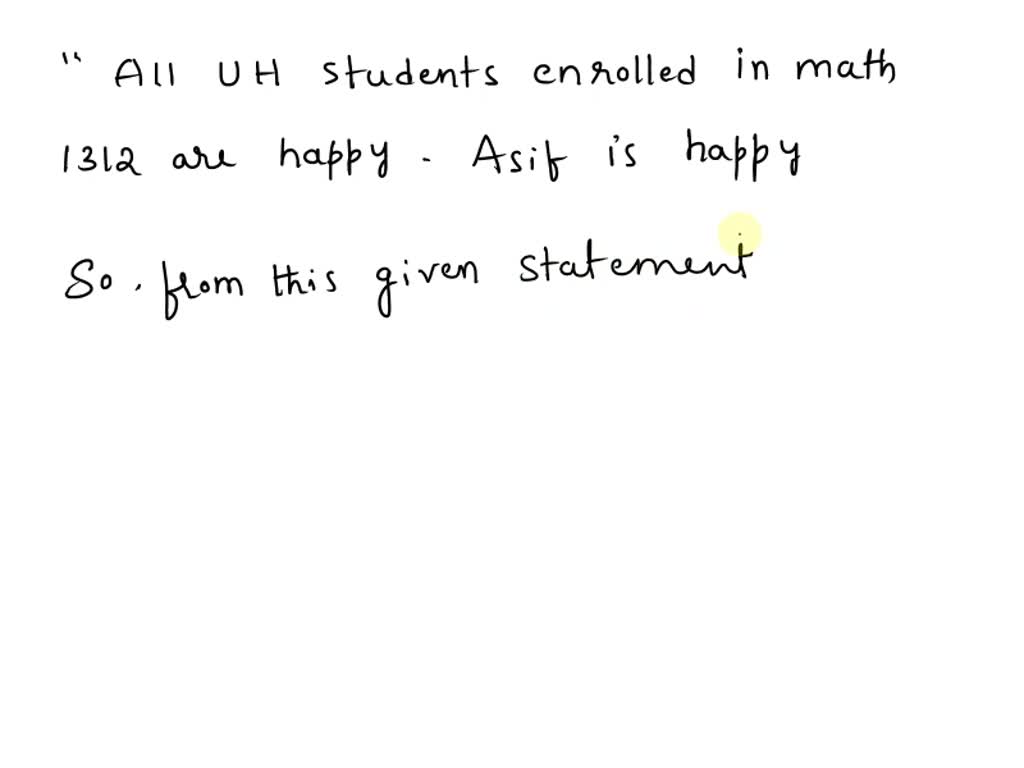 " All UH students enrolled in math
1312 are happy . Asif is happy
So , from this given statement